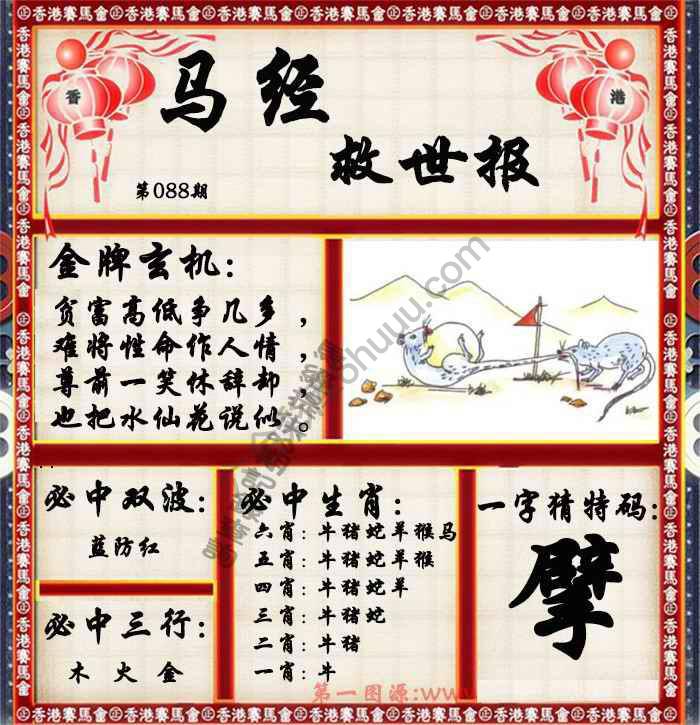 香港賽馬會㊣香港賽馬會㊣香港賽馬會㊣香港賽馬會㊣香港賽馬會㊣香港賽馬會㊣香港賽馬會
香
港
马经
救世报
第088期
金牌玄机：
贫富高低争几多，
难将性命作人情，
尊前一笑休辞却，
也把水仙花说似。
必中双波：
蓝防红
必中三行：
木 火 金
必中生肖：
六肖：牛猪蛇羊猴马
五肖：牛猪蛇羊猴
四肖：牛猪蛇羊
三肖：牛猪蛇
二肖：牛猪
一肖：牛
一字猜特码：
擘
第一图源:www